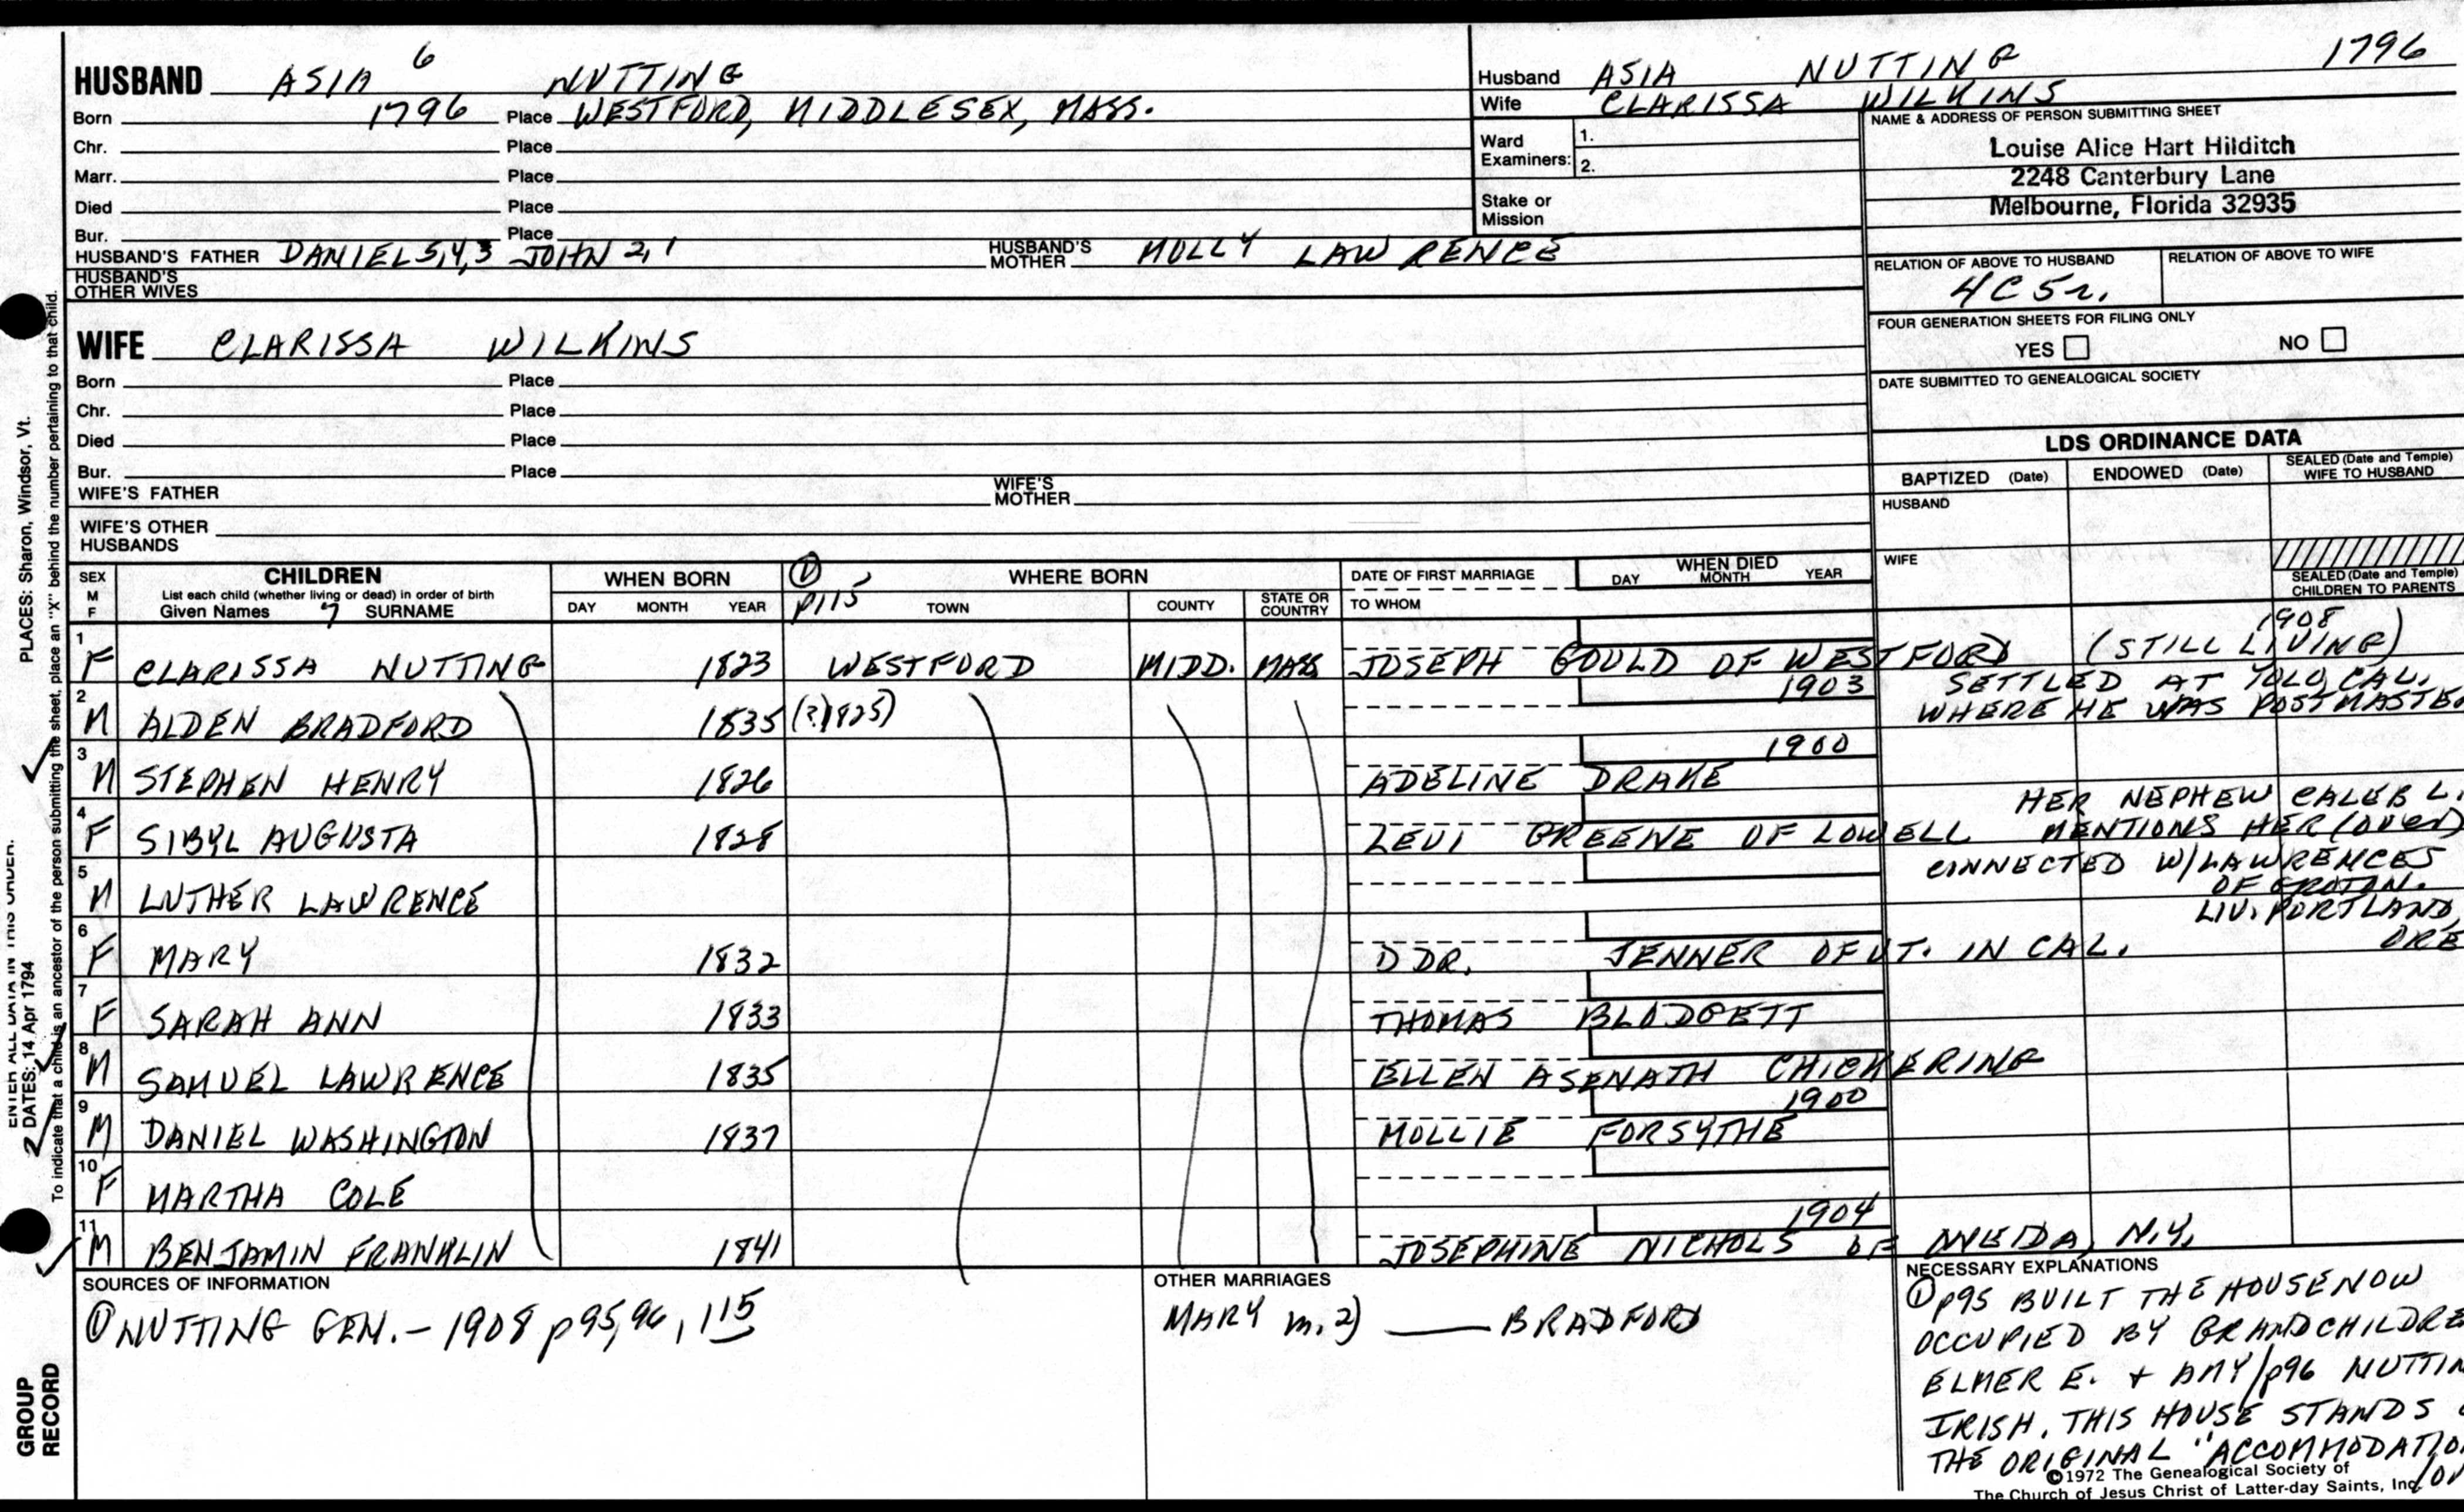 HUSBAND ASIA 6 NUTTING
Born 1796 Place WESTFORD, MIDDLESEX, MASS.
Chr. Place
Marr. Place
Died Place
Bur. Place
HUSBAND'S FATHER DANIEL 5,4,3 JOHN 2,1 HUSBAND'S MOTHER MOLLY LAWRENCE
HUSBAND'S OTHER WIVES
WIFE CLARISSA WILKINS
Born Place
Chr. Place
Died Place
Bur. Place
WIFE'S FATHER WIFE'S MOTHER
WIFE'S OTHER HUSBANDS
Husband ASIA NUTTING 1796
Wife CLARISSA WILKINS
Ward Examiners: 1.
2.
Stake or Mission
NAME & ADDRESS OF PERSON SUBMITTING SHEET
Louise Alice Hart Hilditch
2248 Canterbury Lane
Melbourne, Florida 32935
RELATION OF ABOVE TO HUSBAND RELATION OF ABOVE TO WIFE
4C5r.
FOUR GENERATION SHEETS FOR FILING ONLY
YES NO
DATE SUBMITTED TO GENEALOGICAL SOCIETY
LDS ORDINANCE DATA
BAPTIZED (Date) ENDOWED (Date) SEALED (Date and Temple) WIFE TO HUSBAND
HUSBAND
WIFE
SEALED (Date and Temple) CHILDREN TO PARENTS
SEX M F CHILDREN
List each child (whether living or dead) in order of birth
Given Names 7 SURNAME
WHEN BORN DAY MONTH YEAR
① p115 WHERE BORN TOWN COUNTY STATE OR COUNTRY
DATE OF FIRST MARRIAGE TO WHOM
WHEN DIED DAY MONTH YEAR
1 F CLARISSA NUTTING 1823 WESTFORD MIDD. MASS JOSEPH GOULD OF WESTFORD 1908 (STILL LIVING)
2 M ALDEN BRADFORD 1835 (?1825) 1903 SETTLED AT YOLO, CAL.
WHERE HE WAS POSTMASTE
3 M STEPHEN HENRY 1826 1900 ADELINE DRAKE
4 F SIBYL AUGUSTA 1828 LEVI GREENE OF LOWELL HER NEPHEW CALEB L.
MENTIONS HER (OVER)
5 M LUTHER LAWRENCE CONNECTED W/LAWRENCES
OF GROTON.
LIV. PORTLAND,
ORE
6 F MARY 1832 D DR. JENNER OF VT. IN CAL.
7 F SARAH ANN 1833 THOMAS BLODGETT
8 M SAMUEL LAWRENCE 1835 ELLEN ASENATH CHICKERING
9 M DANIEL WASHINGTON 1837 1900 MOLLIE FORSYTHE
10 F MARTHA COLE
11 M BENJAMIN FRANKLIN 1841 1904 JOSEPHINE NICHOLS OF ONEIDA, N.Y.
SOURCES OF INFORMATION
① NUTTING GEN. - 1908 p95,96, 115
OTHER MARRIAGES
MARY m. 2) BRADFORD
NECESSARY EXPLANATIONS
① p95 BUILT THE HOUSE NOW
OCCUPIED BY GRANDCHILDRE
ELMER E. + AMY/p96 NUTTIN
IRISH. THIS HOUSE STANDS
THE ORIGINAL "ACCOMMODATIO
©1972 The Genealogical Society of
The Church of Jesus Christ of Latter-day Saints, Inc.
PLACES: Sharon, Windsor, Vt.
ENTER ALL DATA IN THIS ORDER:
DATES: 14 Apr 1794
To indicate that a child is an ancestor of the person submitting the sheet, place an "X" behind the number pertaining to that child.
GROUP RECORD